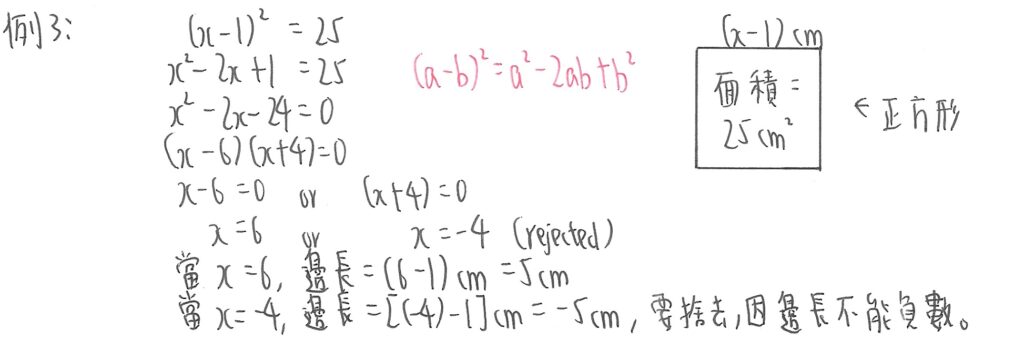 例3:
(x-1)² = 25
x²-2x+1 = 25
(a-b)²=a²-2ab+b²
x²-2x-24=0
(x-6)(x+4)=0
x-6=0 or (x+4)=0
x=6 or x=-4 (rejected)
當 x=6, 邊長=(6-1)cm=5cm
當 x=-4, 邊長=[(-4)-1]cm=-5cm, 要捨去,因邊長不能負數。
(x-1)cm
面積=
25cm²
← 正方形